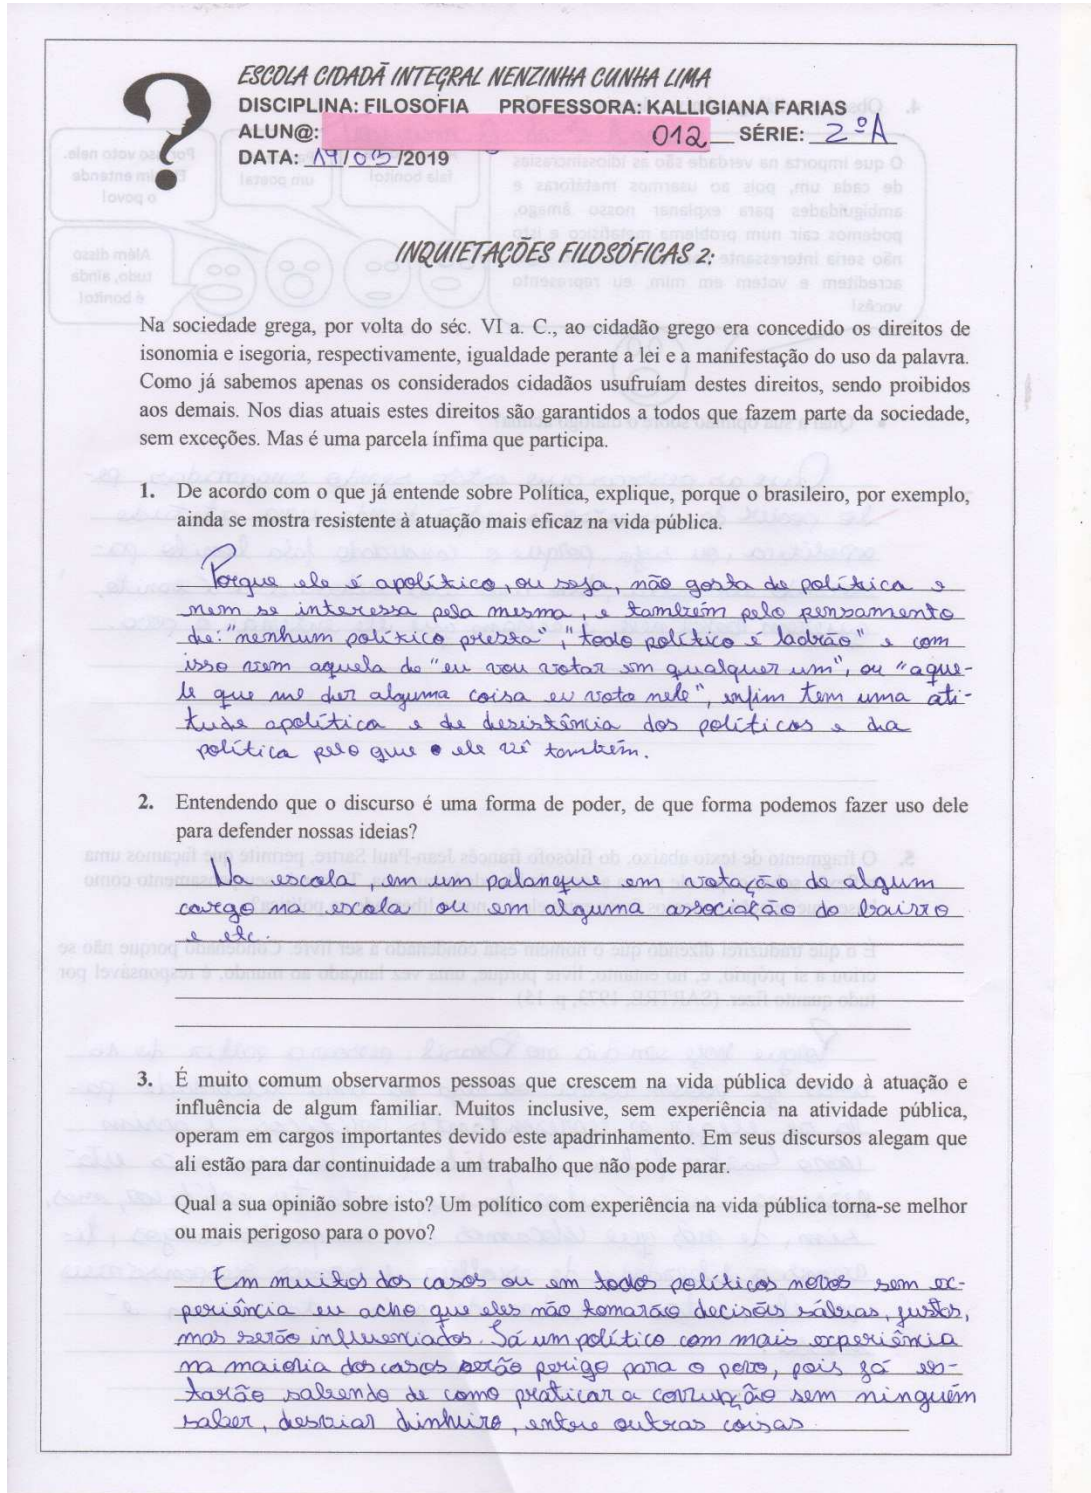 ESCOLA CIDADÃ INTEGRAL NENZINHA CUNHA LIMA
DISCIPLINA: FILOSOFIA PROFESSORA: KALLIGIANA FARIAS
ALUN@: 012 SÉRIE: 2º A
DATA: 19/03/2019
INQUIETAÇÕES FILOSÓFICAS 2:
Na sociedade grega, por volta do séc. VI a. C., ao cidadão grego era concedido os direitos de
isonomia e isegoria, respectivamente, igualdade perante a lei e a manifestação do uso da palavra.
Como já sabemos apenas os considerados cidadãos usufruíam destes direitos, sendo proibidos
aos demais. Nos dias atuais estes direitos são garantidos a todos que fazem parte da sociedade,
sem exceções. Mas é uma parcela ínfima que participa.
1. De acordo com o que já entende sobre Política, explique, porque o brasileiro, por exemplo,
ainda se mostra resistente à atuação mais eficaz na vida pública.
Porque ele é apolítico, ou seja, não gosta de política e
nem se interessa pela mesma, e também pelo pensamento
de: "nenhum político presta", "todo político é ladrão" e com
isso vem aquela de "eu vou votar em qualquer um", ou "aque-
le que me der alguma coisa eu voto nele", enfim tem uma ati-
tude apolítica e de desistência dos políticos e da
política pelo que ele vê também.
2. Entendendo que o discurso é uma forma de poder, de que forma podemos fazer uso dele
para defender nossas ideias?
Na escola, em um palanque em votação de algum
cargo na escola ou em alguma associação do bairro
e etc.
3. É muito comum observarmos pessoas que crescem na vida pública devido à atuação e
influência de algum familiar. Muitos inclusive, sem experiência na atividade pública,
operam em cargos importantes devido este apadrinhamento. Em seus discursos alegam que
ali estão para dar continuidade a um trabalho que não pode parar.
Qual a sua opinião sobre isto? Um político com experiência na vida pública torna-se melhor
ou mais perigoso para o povo?
Em muitos dos casos ou em todos políticos novos sem ex-
periência eu acho que eles não tomarão decisões sábias, justas,
mas serão influenciados. Já um político com mais experiência
na maioria dos casos serão perigo para o povo, pois já es-
tarão sabendo de como praticar a corrupção sem ninguém
saber, desviar dinheiro, entre outras coisas